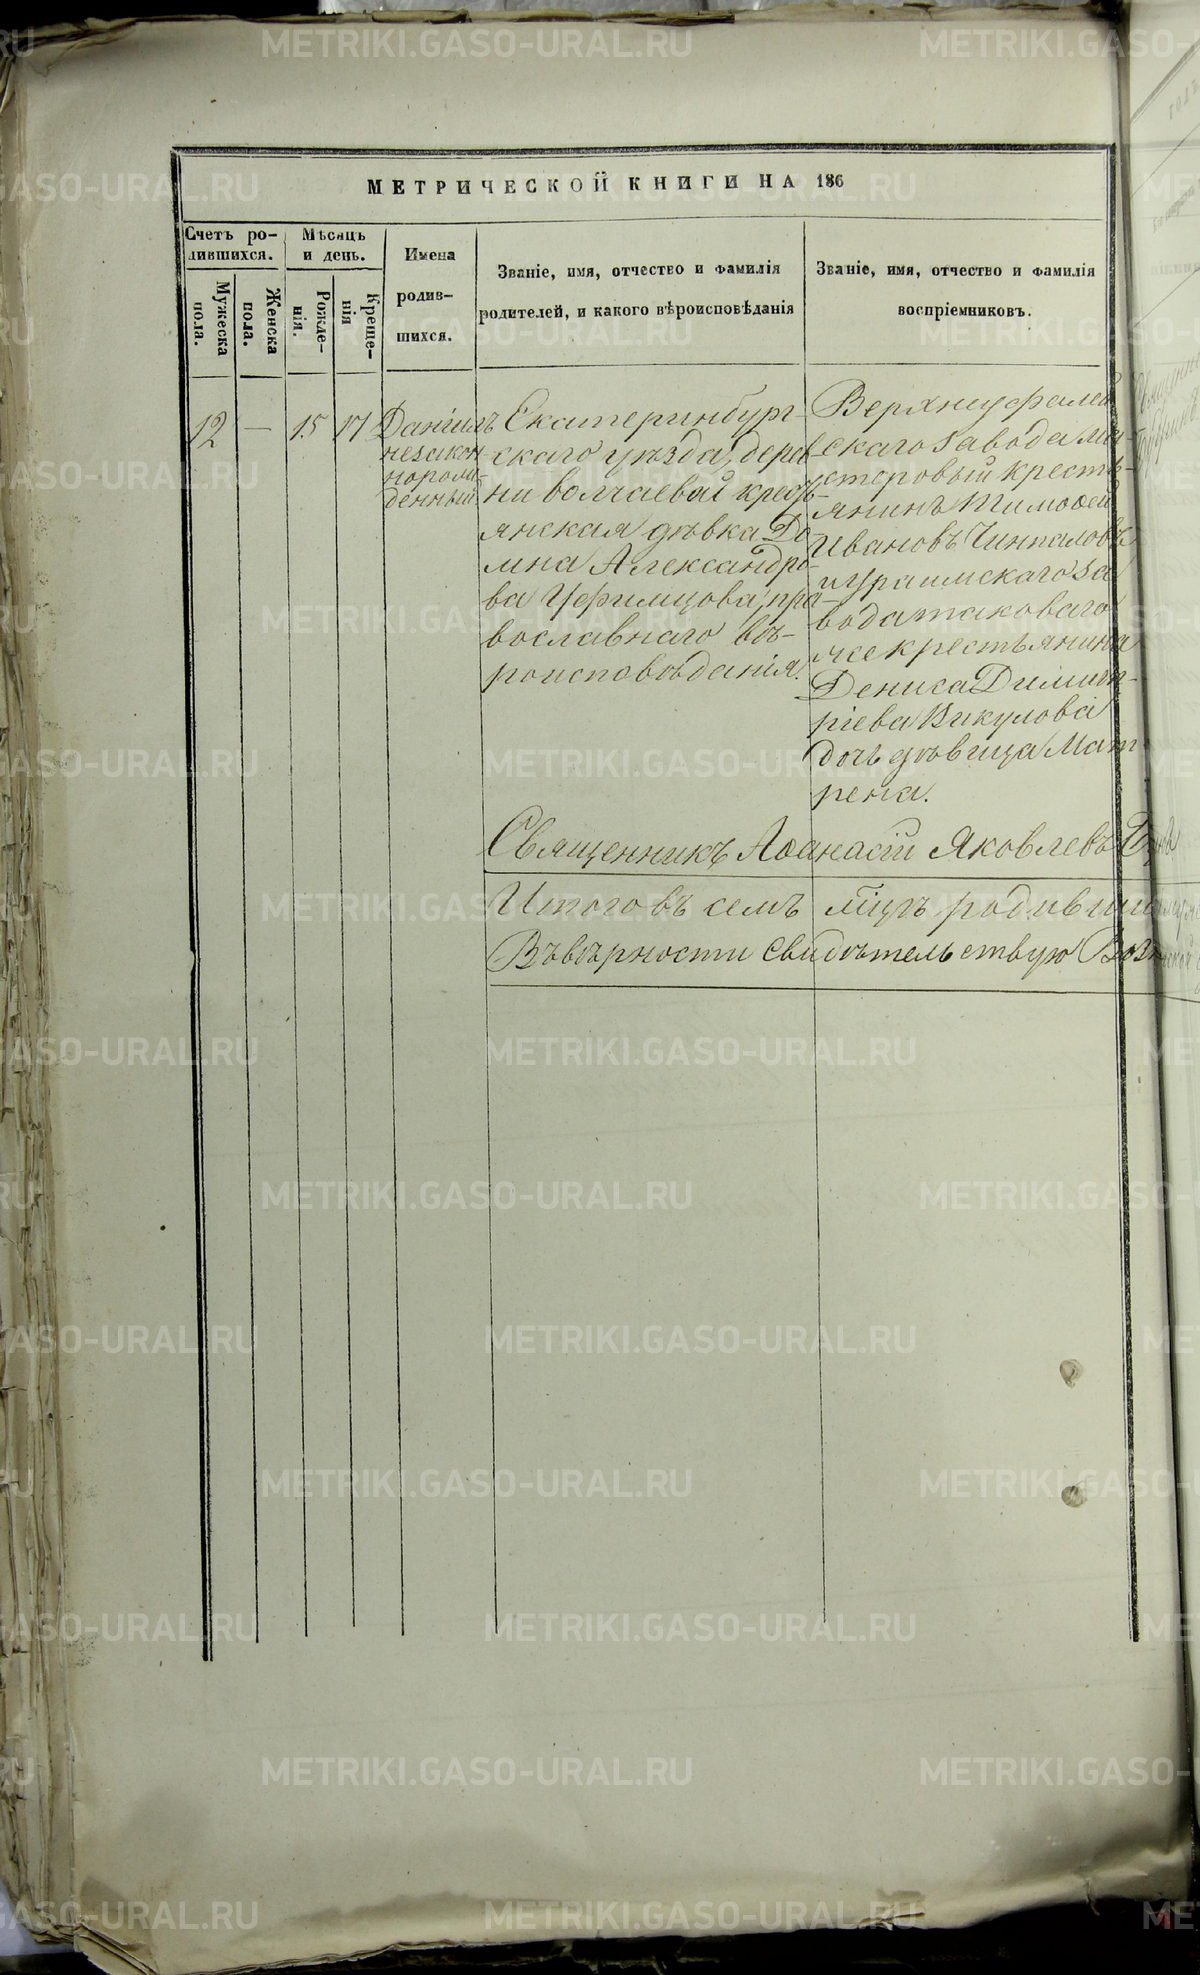 МЕТРИЧЕСКОЙ КНИГИ НА 186
Счетъ ро-
дившихся.
Мѣсяцъ
и день.
Имена
родив-
шихся.
Званіе, имя, отчество и фамилія
родителей, и какого вѣроисповѣданія
Званіе, имя, отчество и фамилія
воспріемниковъ.
Мужеска
пола.
Женска
пола.
Рожде-
нія.
Креще-
нія
12 — 15 17
Даніилъ
незакон-
норож-
денный.
Екатеринбург-
скаго уѣзда, дерев-
ни Волчаевой кресть-
янская дѣвка До-
мна Александро-
ва Уфимцова, пра-
вославнаго вѣ-
роисповѣданія.
Верхнеуфалей-
скаго завода ма-
стеровый кресть-
янинъ Тимоѳей
Ивановъ
и Нураимскаго за
вода таковаго
же крестьянина
Дениса Димит-
ріева Викулова
дочь дѣвица Мат
рена.
Священникъ Аѳанасій Яковлевъ
Итого въ семъ мцѣ родивши
Въ вѣрности свидѣтельствую
METRIKI.GASO-URAL.RU